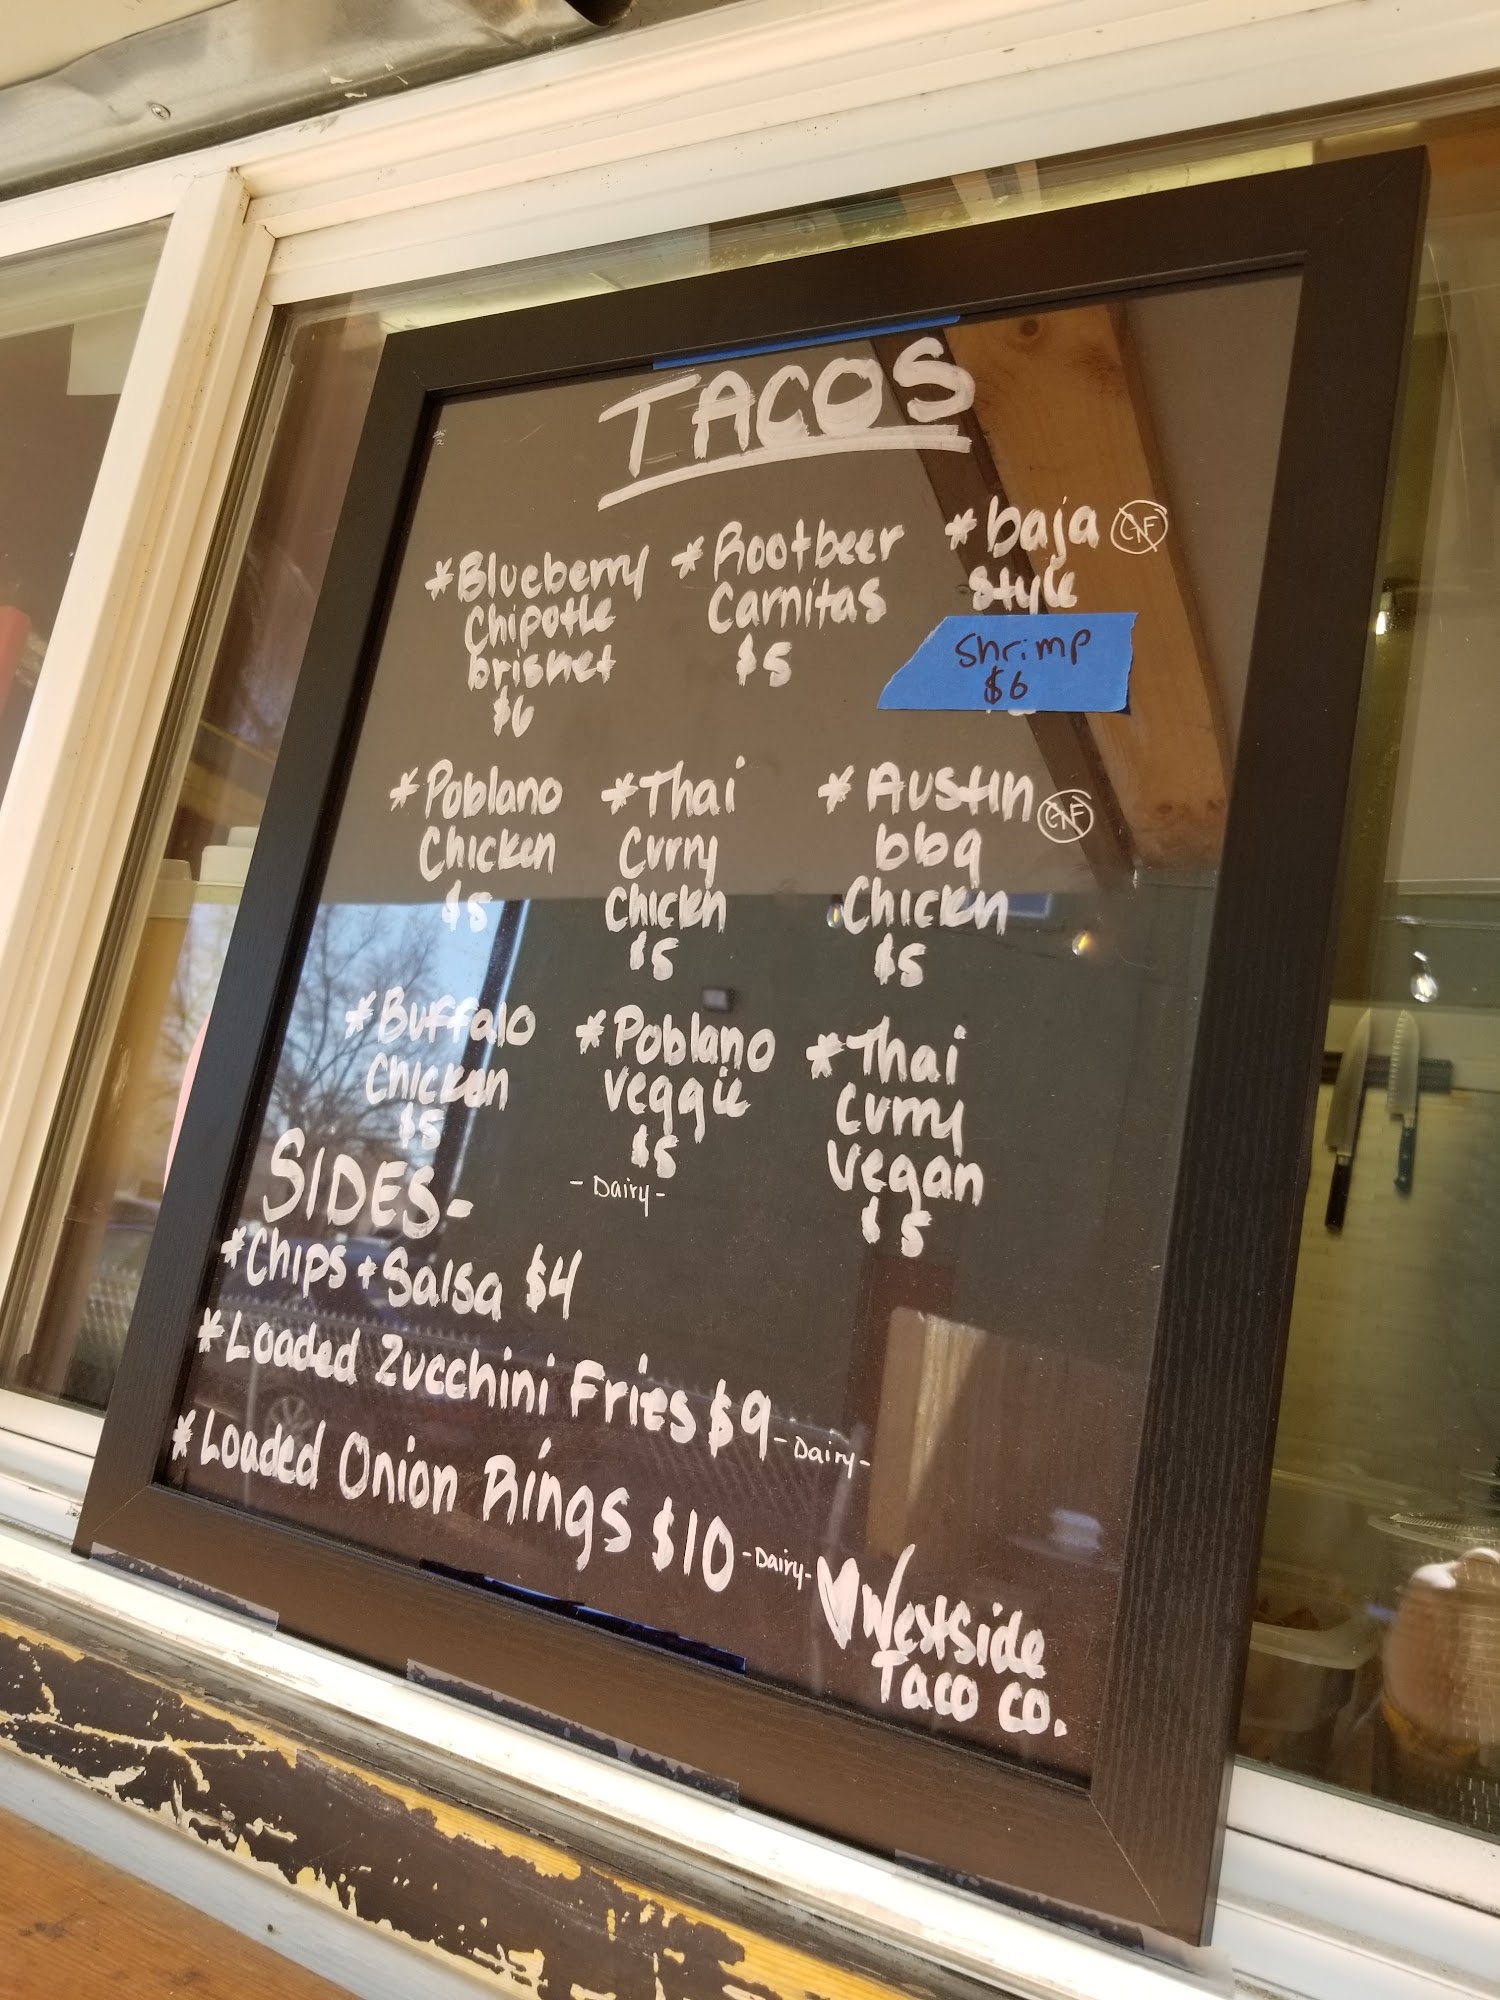 TACOS
*Blueberry
Chipotle
brisket
$6
*Rootbeer
Carnitas
$5
*baja GNF
style
Shrimp
$6
*Poblano
Chicken
$5
*Thai
Curry
Chicken
$5
*Austin GNF
bbq
Chicken
$5
*Buffalo
Chicken
$5
*Poblano
Veggie
$5
- Dairy -
*Thai
Curry
Vegan
$5
SIDES-
*Chips + Salsa $4
*Loaded Zucchini Fries $9 - Dairy -
*Loaded Onion Rings $10 - Dairy -
Westside
Taco Co.